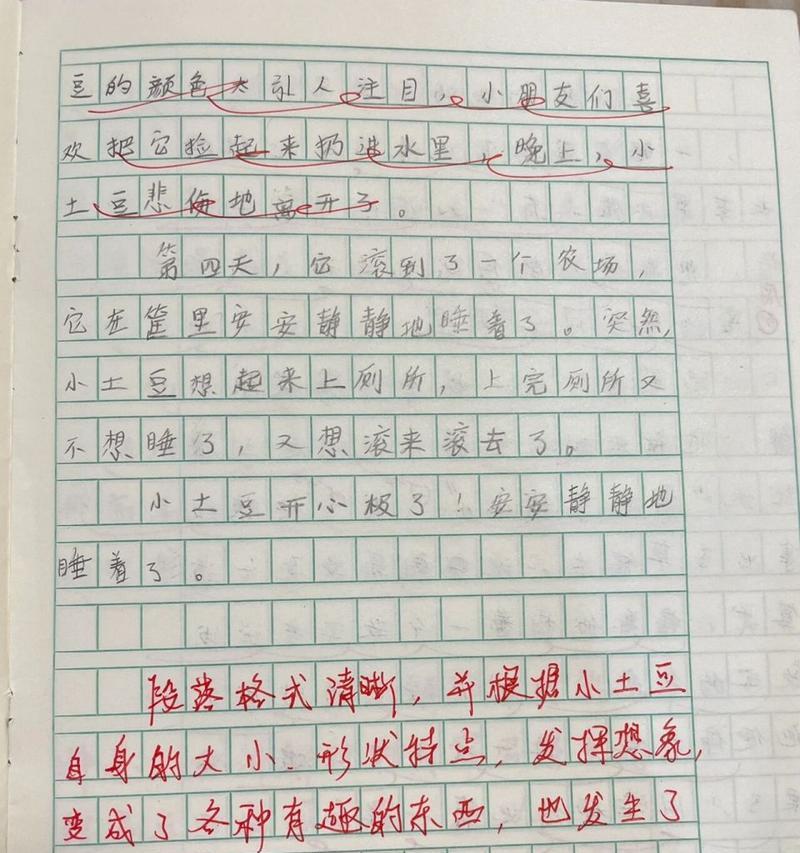 豆的颜色太引人注目，小朋友们喜
欢把它捡起来扔进水里，晚上，小
土豆悲伤地离开了。
第四天，它滚到了一个农场，
它在筐里安安静静地睡着了。突然，
小土豆想起来上厕所，上完厕所又
不想睡了，又想滚来滚去了。
小土豆开心极了！安安静静地
睡着了。
段落格式清晰，并根据小土豆
自身的大小、形状特点，发挥想象，
变成了各种有趣的东西，也发生了